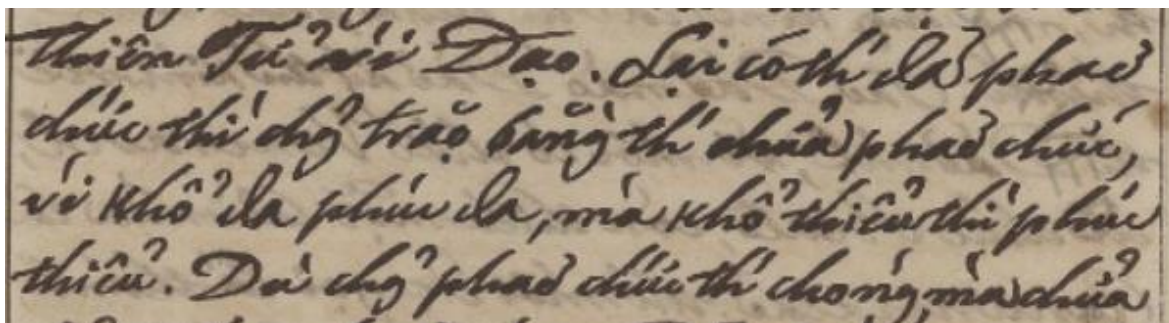 thiên Tứ với Đạo. Lại có thì đã phaỏ
chức thì chg̉ traọ bằng thì chưả phaỏ chức,
ví khổ đa phúc đa, mà khổ thiểu thì phúc
thiểu. Dù chg̉ phaỏ chức thì chóng, mà chưả